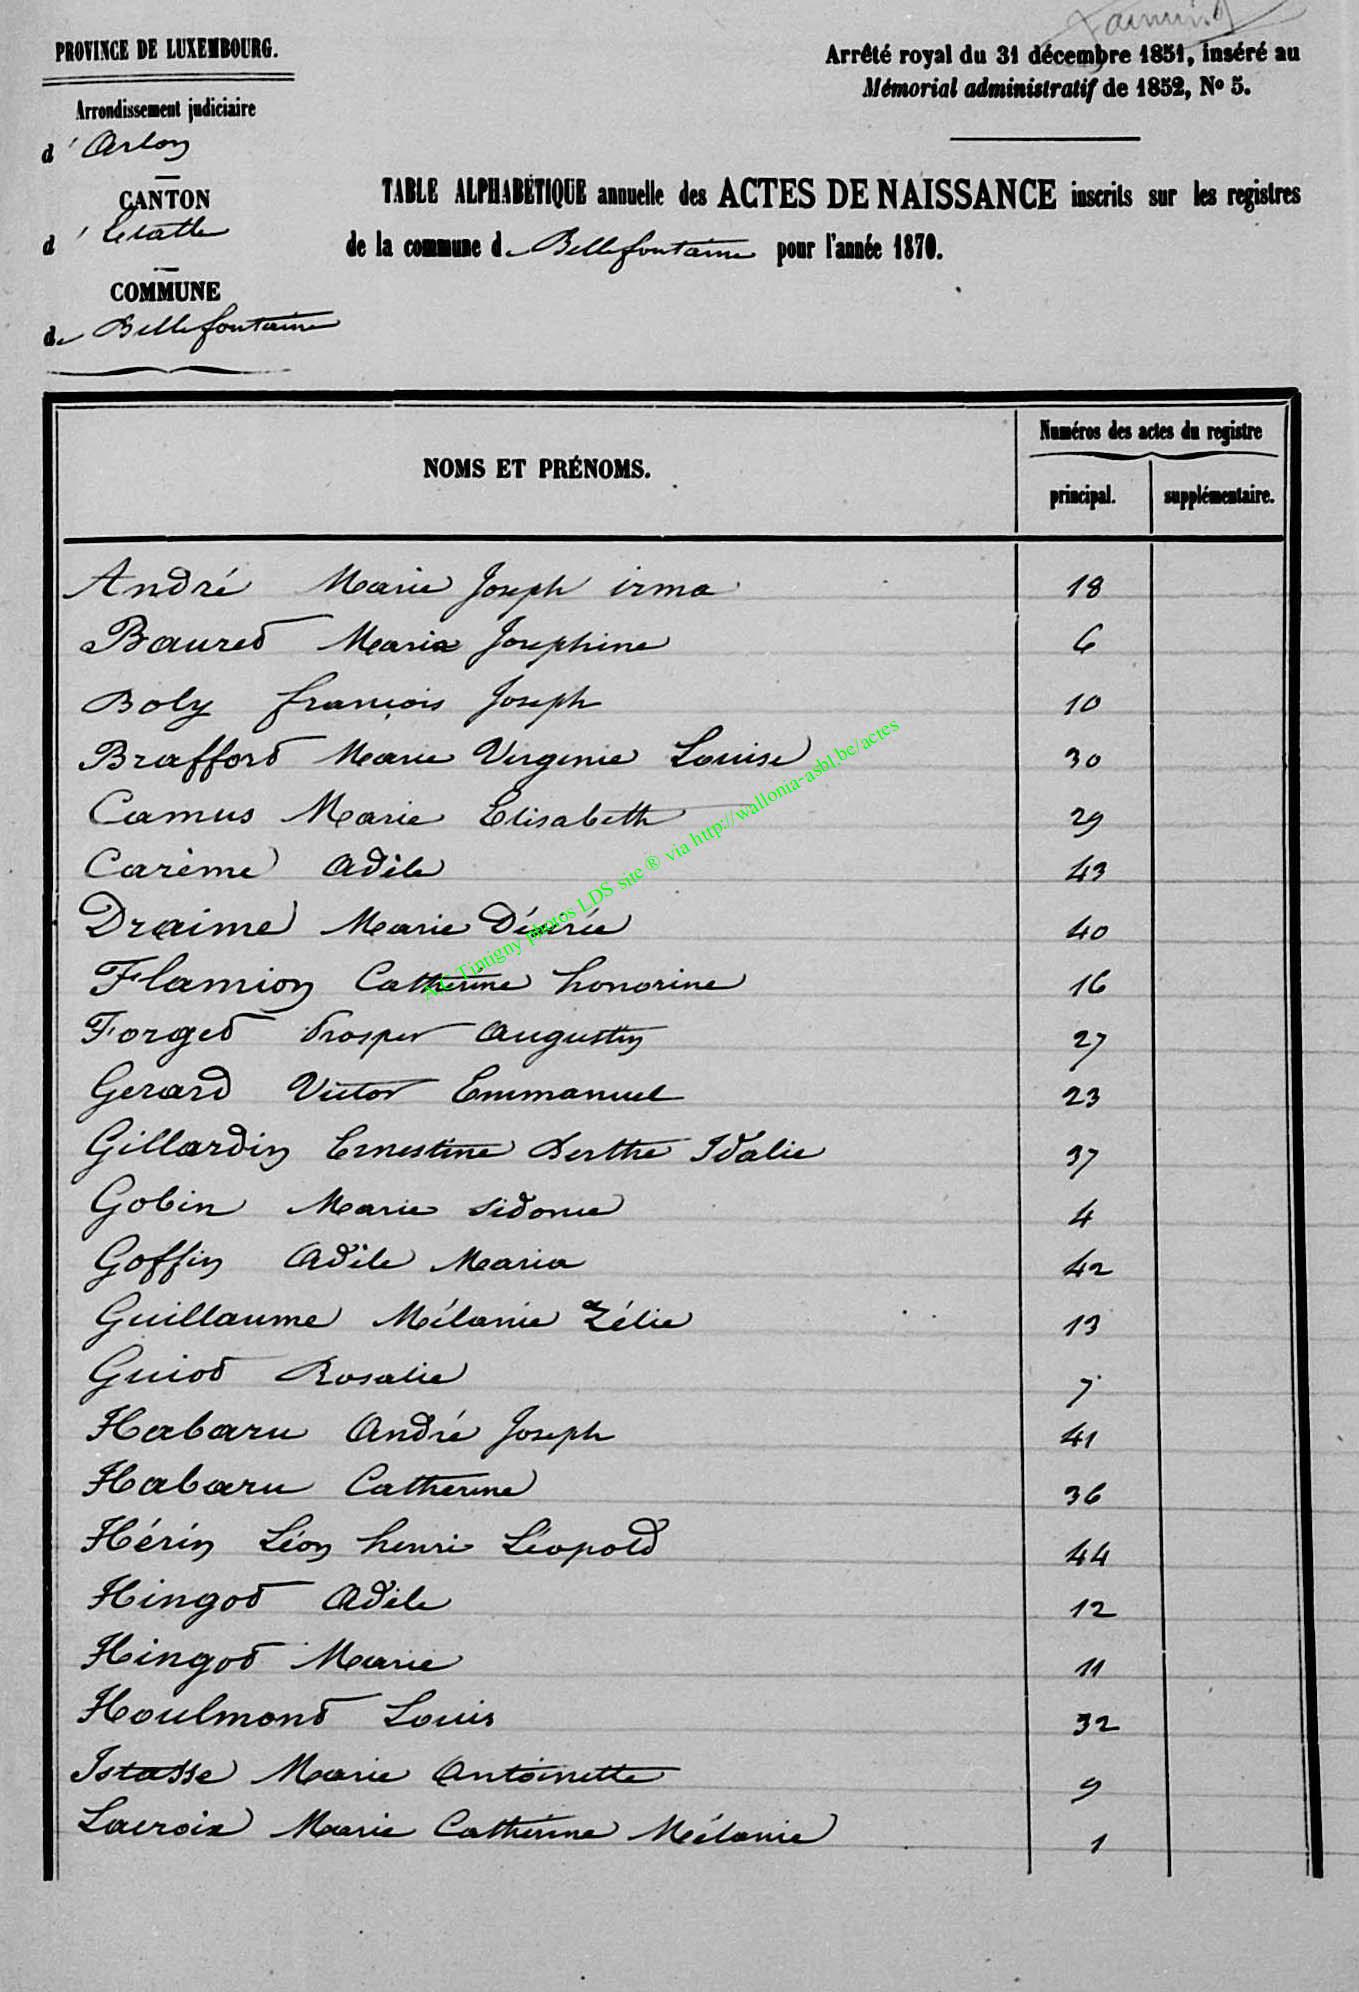 PROVINCE DE LUXEMBOURG.
Arrondissement judiciaire
d'Arlon
CANTON
d'Etalle
COMMUNE
de Bellefontaine
Arrêté royal du 31 décembre 1851, inséré au
Mémorial administratif de 1852, No 5.
TABLE ALPHABÉTIQUE annuelle des ACTES DE NAISSANCE inscrits sur les registres
de la commune de Bellefontaine pour l'année 1870.
NOMS ET PRÉNOMS.
Numéros des actes du registre
principal. supplémentaire.
André Marie Joseph irma 18
Bauret Maria Josephine 6
Boly françois Joseph 10
Braffort Marie Virginie Louise 30
Camus Marie Elisabeth 29
Carème Adèle 43
Draime Marie Désirée 40
Flamion Catherine honorine 16
Forget Prosper Augustin 27
Gerard Victor Emmanuel 23
Gillardin Ernestine Berthe Idalie 37
Gobin Marie Sidonie 4
Goffin Adèle Maria 42
Guillaume Mélanie Zélie 13
Guiot Rosalie 7
Habaru André Joseph 41
Habaru Catherine 36
Hérin Léon henri Léopold 44
Hingot Adèle 12
Hingot Marie 11
Houlmont Louis 32
Istasse Marie Antoinette 9
Lacroix Marie Catherine Mélanie 1
A.C Tintigny photos LDS site ® via http://wallonia-asbl.be/actes